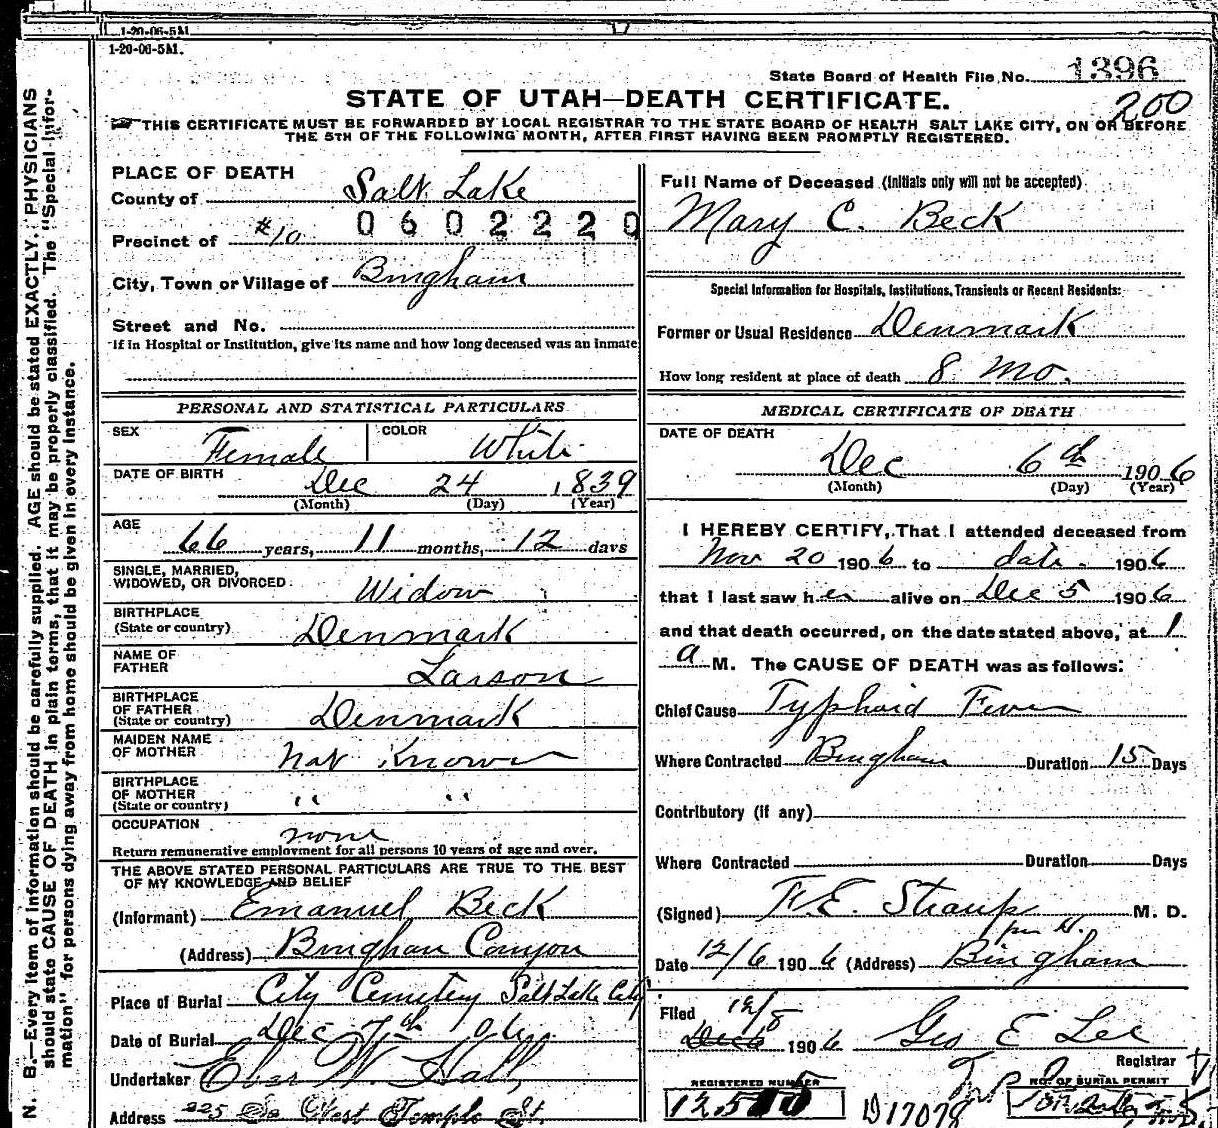 1-20-06-5M.
1-20-06-5M.
State Board of Health File No. 1396
STATE OF UTAH—DEATH CERTIFICATE.
200
THIS CERTIFICATE MUST BE FORWARDED BY LOCAL REGISTRAR TO THE STATE BOARD OF HEALTH SALT LAKE CITY, ON OR BEFORE
THE 5TH OF THE FOLLOWING MONTH, AFTER FIRST HAVING BEEN PROMPTLY REGISTERED.
N. B.—Every item of information should be carefully supplied. AGE should be stated EXACTLY. PHYSICIANS
should state CAUSE OF DEATH in plain terms, that it may be properly classified. The "Special Infor-
mation" for persons dying away from home should be given in every instance.
PLACE OF DEATH
County of Salt Lake
0602220
Precinct of #10
City, Town or Village of Bingham
Street and No.
If in Hospital or Institution, give its name and how long deceased was an inmate
PERSONAL AND STATISTICAL PARTICULARS
SEX Female COLOR White
DATE OF BIRTH Dec 24 1839
(Month) (Day) (Year)
AGE 66 years, 11 months, 12 days
SINGLE, MARRIED,
WIDOWED, OR DIVORCED Widow
BIRTHPLACE
(State or country) Denmark
NAME OF
FATHER Larson
BIRTHPLACE
OF FATHER
(State or country) Denmark
MAIDEN NAME
OF MOTHER Not Known
BIRTHPLACE
OF MOTHER
(State or country) " "
OCCUPATION none
Return remunerative employment for all persons 10 years of age and over.
THE ABOVE STATED PERSONAL PARTICULARS ARE TRUE TO THE BEST
OF MY KNOWLEDGE AND BELIEF
(Informant) Emanuel Beck
(Address) Bingham Canyon
Place of Burial City Cemetery Salt Lake City
Date of Burial Dec 7th
Undertaker Eber W. Hall
Address 225 So West Temple St.
Full Name of Deceased (Initials only will not be accepted)
Mary C. Beck
Special Information for Hospitals, Institutions, Transients or Recent Residents:
Former or Usual Residence Denmark
How long resident at place of death 8 Mo.
MEDICAL CERTIFICATE OF DEATH
DATE OF DEATH
Dec 6th 1906
(Month) (Day) (Year)
I HEREBY CERTIFY, That I attended deceased from
Nov 20 1906 to date 1906
that I last saw her alive on Dec 5 1906
and that death occurred, on the date stated above, at 1
a M. The CAUSE OF DEATH was as follows:
Chief Cause Typhoid Fever
Where Contracted Bingham Duration 15 Days
Contributory (if any)
Where Contracted Duration Days
(Signed) F. E. Straup M. D.
per H.
Date 12/6 1906 (Address) Bingham
Filed 12/8
Dec 6 1906 Geo E Lee
Registrar
REGISTERED NUMBER
NO. OF BURIAL PERMIT
D17078